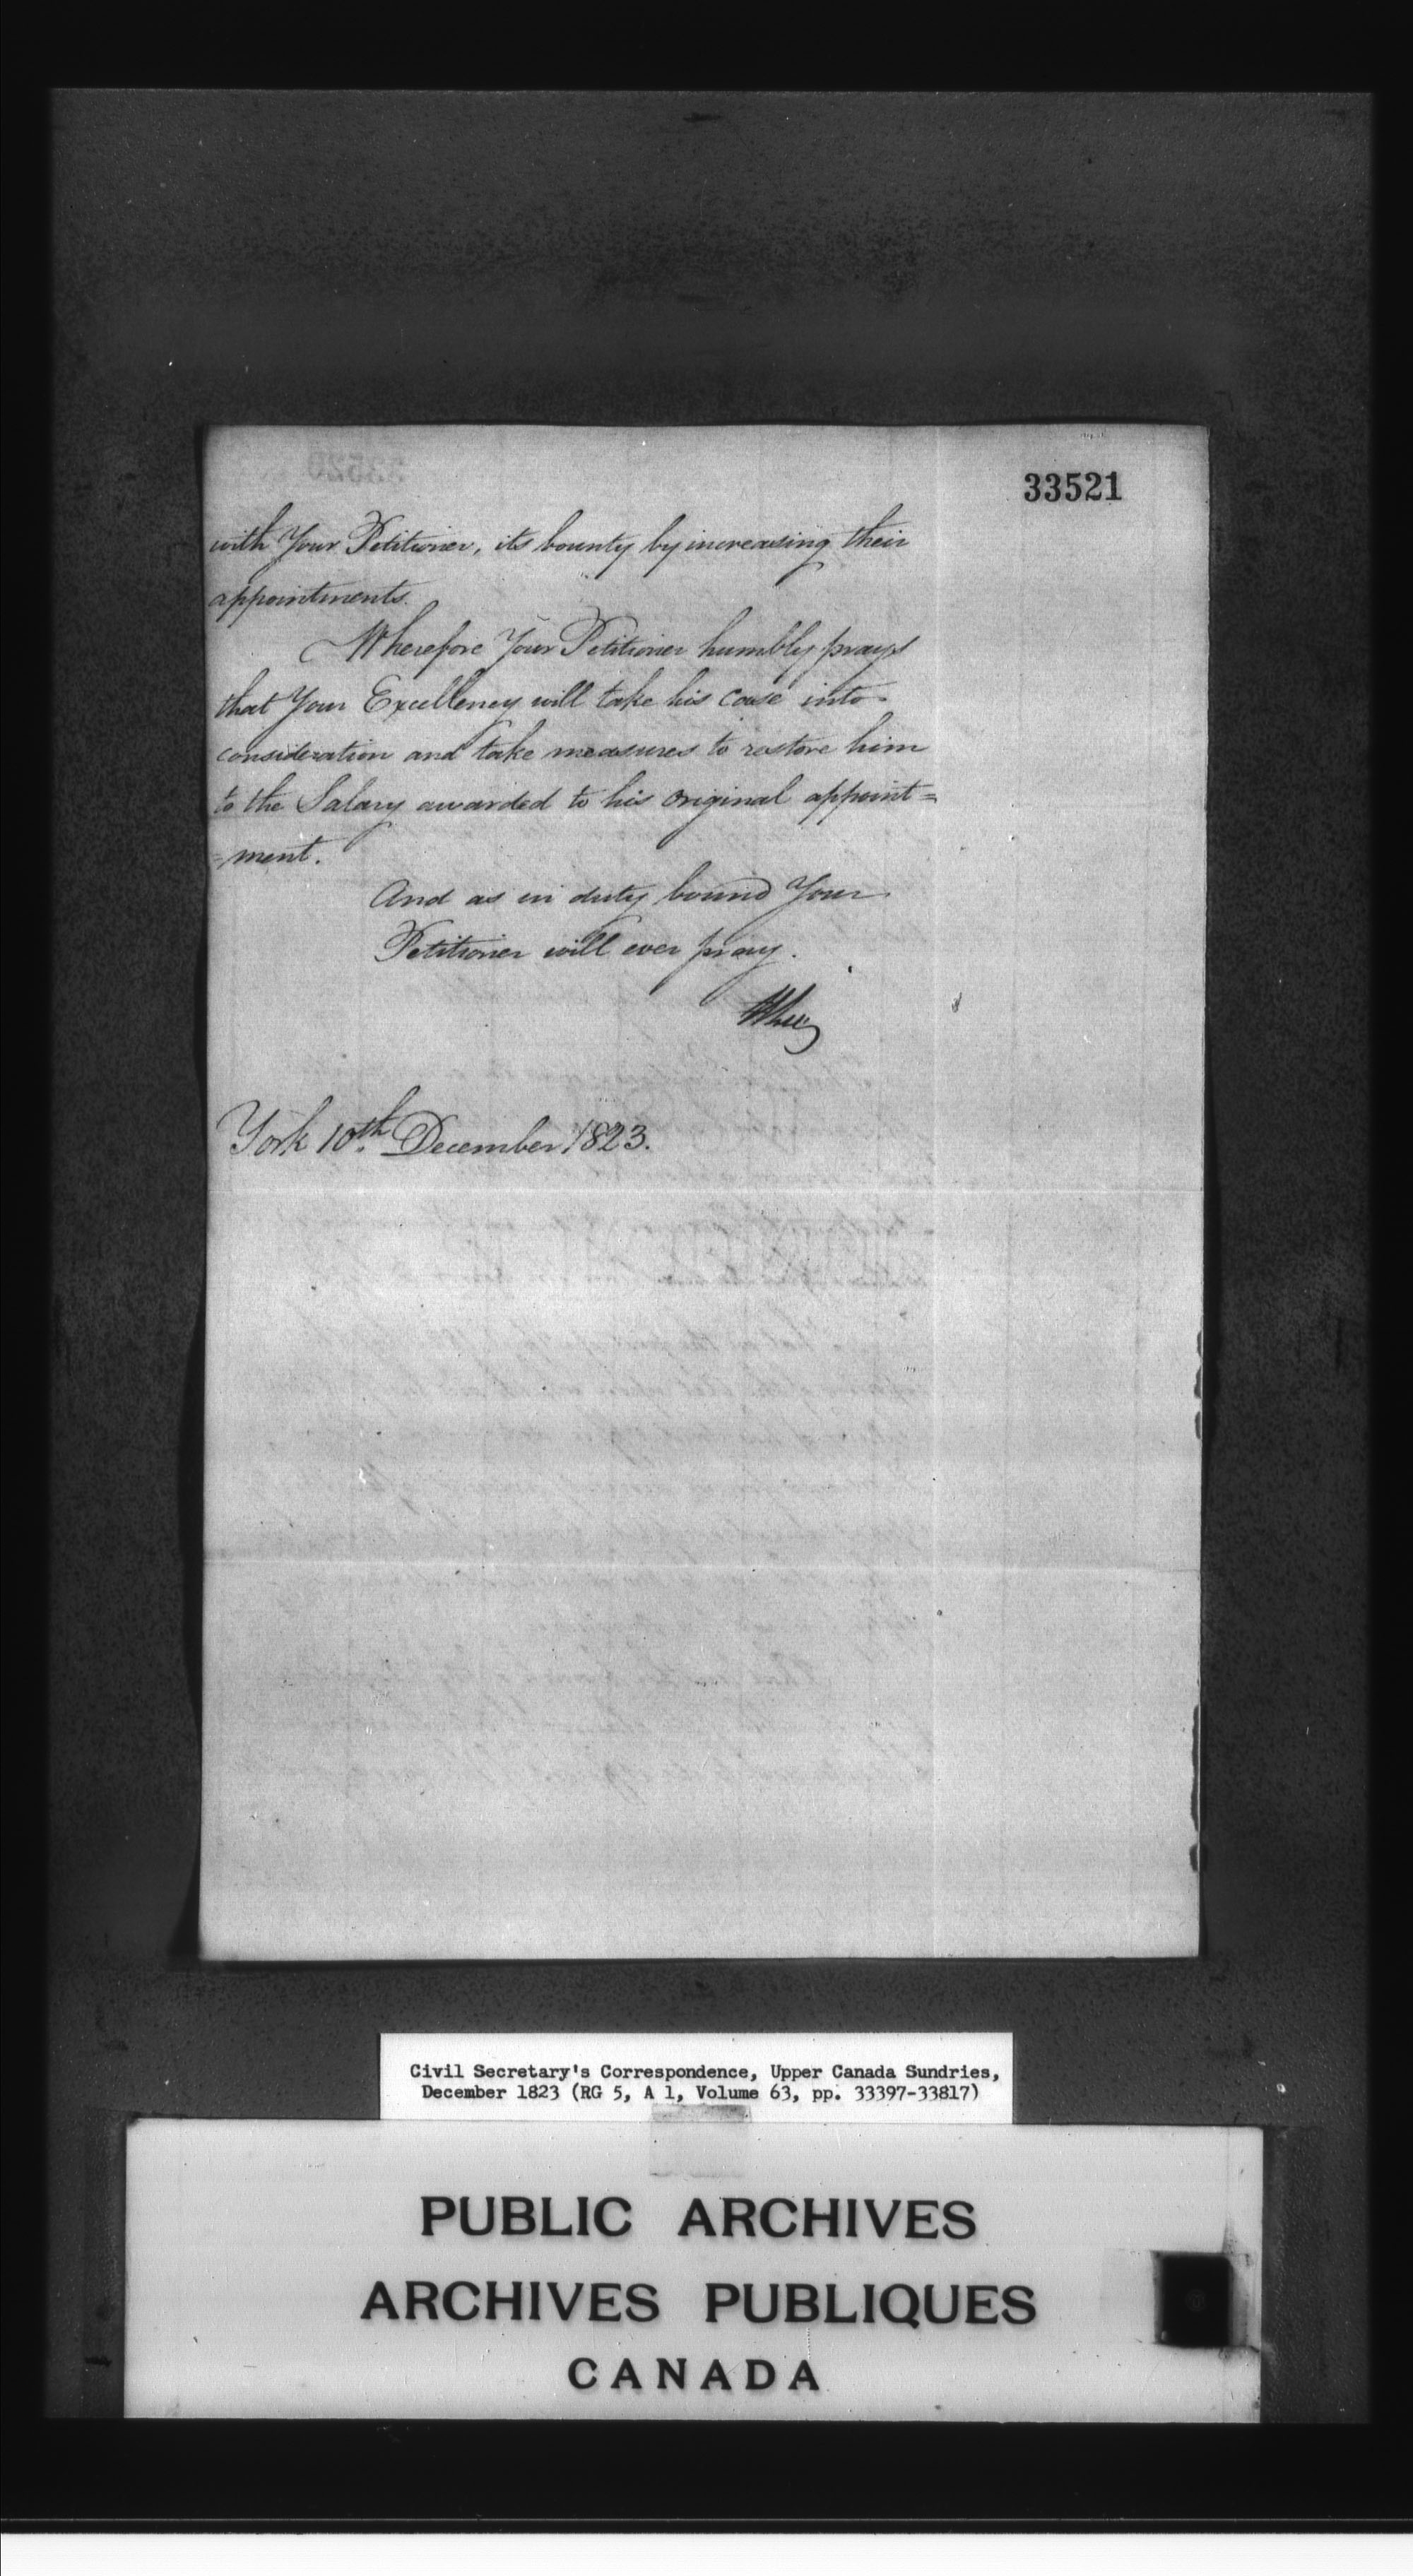 33521
with Your Petitioner, its bounty by increasing their
appointments.
Wherefore Your Petitioner humbly prays
that Your Excellency will take his case into
consideration and take measures to restore him
to the Salary awarded to his original appoint=
=ment.
And as in duty bound Your
Petitioner will ever pray.
York 10th December 1823.
Civil Secretary's Correspondence, Upper Canada Sundries,
December 1823 (RG 5, A 1, Volume 63, pp. 33397-33817)
PUBLIC ARCHIVES
ARCHIVES PUBLIQUES
CANADA